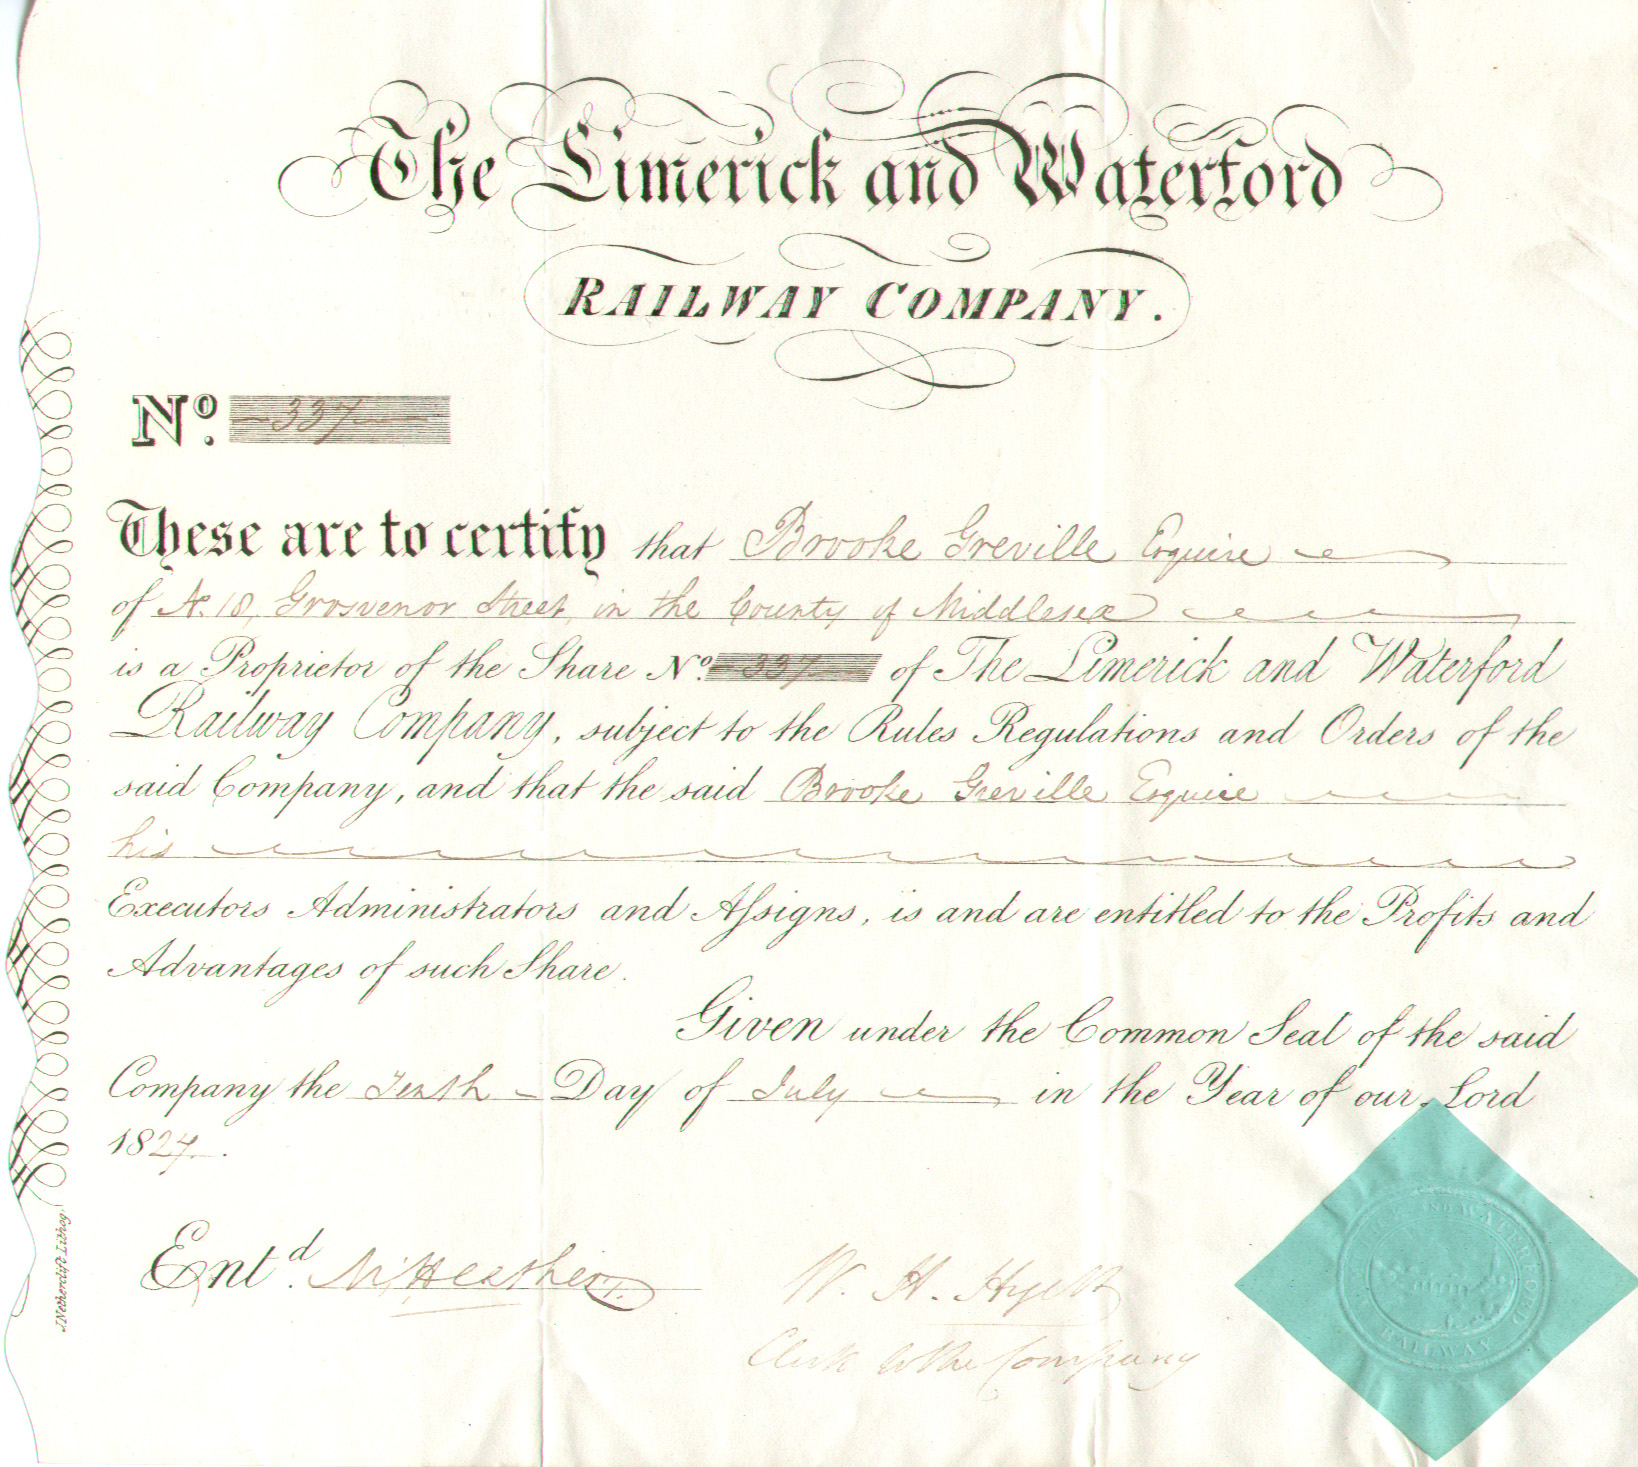 The Limerick and Waterford
RAILWAY COMPANY.
No. 337
These are to certify that Brooke Greville Esquire
of No. 18, Grosvenor Street, in the County of Middlesex
is a Proprietor of the Share No. 337 of The Limerick and Waterford
Railway Company, subject to the Rules Regulations and Orders of the
said Company, and that the said Brooke Greville Esquire
his
Executors Administrators and Aſsigns, is and are entitled to the Profits and
Advantages of such Share.
Given under the Common Seal of the said
Company the Tenth Day of July in the Year of our Lord
1827.
Entd.
W. H. Hyett
Clerk to the Company
J. Netherclift Lithog.
AND WATERFORD
RAILWAY